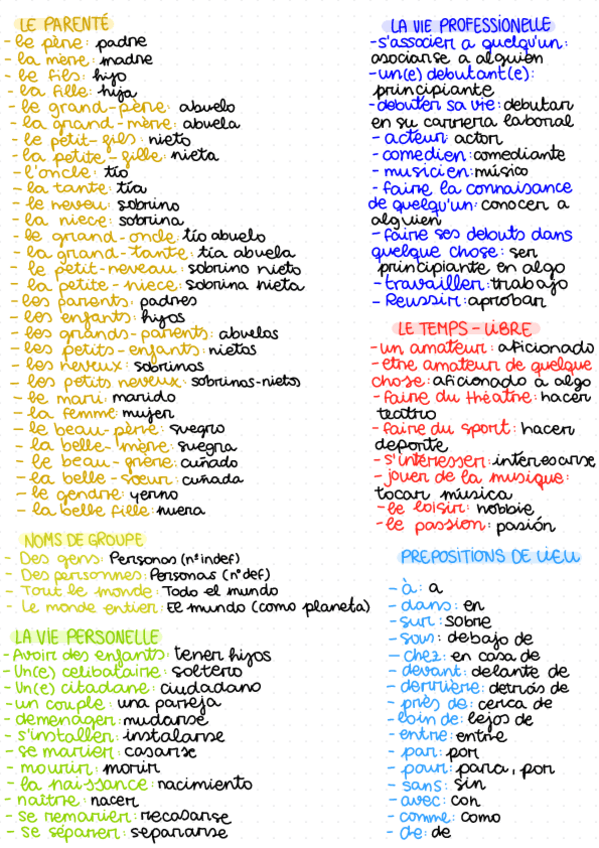 LE PARENTÉ
- le père: padre
- la mère: madre
- le fils: hijo
- la fille: hija
- le grand-père: abuelo
- la grand-mère: abuela
- le petit-fils: nieto
- la petite-fille: nieta
- l'oncle: tío
- la tante: tía
- le neveu: sobrino
- la niece: sobrina
- le grand-oncle: tío abuelo
- la grand-tante: tía abuela
- le petit-neveau: sobrino nieto
- la petite-niece: sobrina nieta
- les parents: padres
- les enfants: hijos
- les grands-parents: abuelos
- les petits-enfants: nietos
- les neveux: sobrinos
- les petits neveux: sobrinos-nietos
- le mari: marido
- la femme: mujer
- le beau-père: suegro
- la belle-mère: suegra
- le beau-frère: cuñado
- la belle-sœur: cuñada
- le gendre: yerno
- la belle fille: nuera
NOMS DE GROUPE
- Des gens: Personas (nº indef)
- Des personnes: Personas (nº def)
- Tout le monde: Todo el mundo
- Le monde entier: El mundo (como planeta)
LA VIE PERSONELLE
- Avoir des enfants: tener hijos
- Un(e) celibataire: soltero
- Un(e) citadane: ciudadano
- un couple: una pareja
- déménager: mudarse
- s'installer: instalarse
- se marier: casarse
- mourir: morir
- la naissance: nacimiento
- naître: nacer
- se remarier: recasarse
- se séparer: separarse
LA VIE PROFESSIONELLE
- s'associer a quelqu'un:
asociarse a alguien
- un(e) debutant(e):
principiante
- debuter sa vie: debutar
en su carrera laboral
- acteur: actor
- comedien: comediante
- musicien: músico
- faire la connaisance
de quelqu'un: conocer a
alguien
- faire ses debuts dans
quelque chose: ser
principiante en algo
- travailler: trabajo
- Reussir: aprobar
LE TEMPS-LIBRE
- un amateur: aficionado
- etre amateur de quelque
chose: aficionado a algo
- faire du théatre: hacer
teatro
- faire du sport: hacer
deporte
- s'intéresser: interesarse
- jouer de la musique:
tocar música
- le loisir: hobbie
- le passion: pasión
PREPOSITIONS DE LIEU
- à: a
- dans: en
- sur: sobre
- sous: debajo de
- chez: en casa de
- devant: delante de
- derrière: detrás de
- près de: cerca de
- loin de: lejos de
- entre: entre
- par: por
- pour: para, por
- sans: sin
- avec: con
- comme: como
- de: de